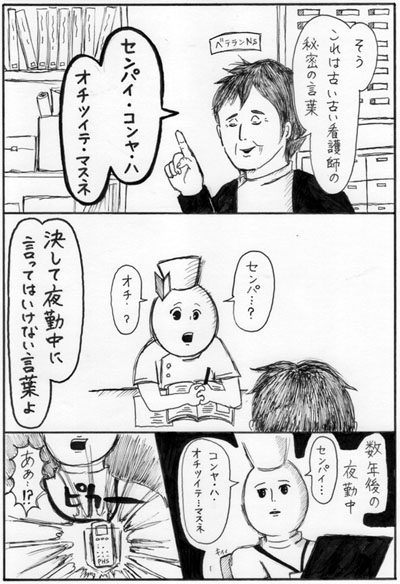 そう
これは古い古い看護師の
秘密の言葉
ベテランNs
センパイ・コンヤ・ハ
オチツイテ・マスネ
センパ…?
オチ・?
決して夜勤中に
言ってはいけない言葉よ
数年後の
夜勤中
センパイ…
コンヤ・ハ・
オチツイテ…マスネ
キィィ
ピカー
あぁ!?
PHS